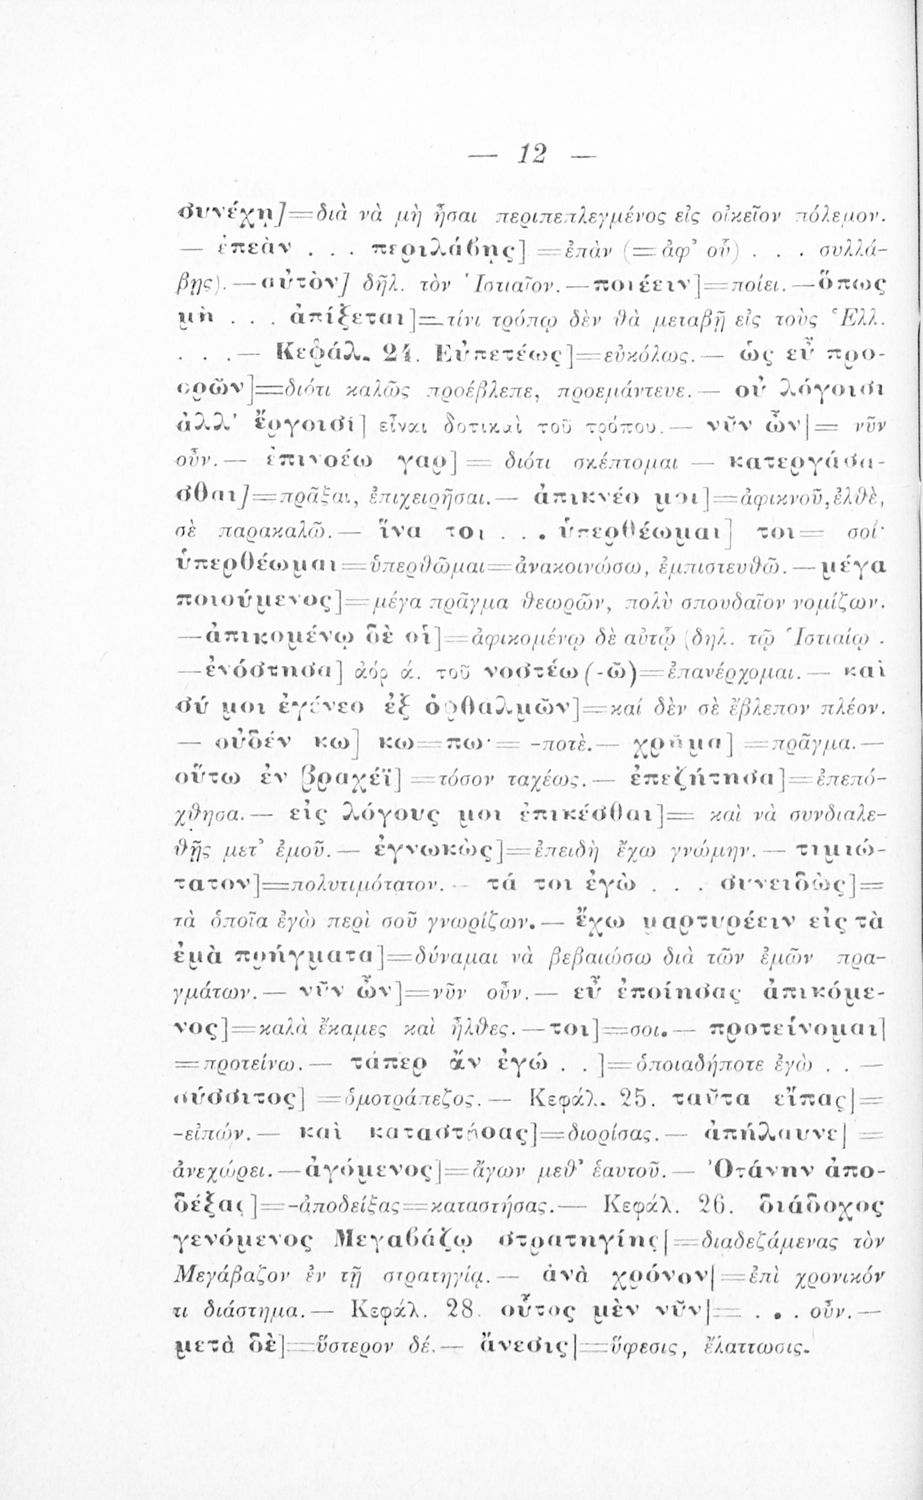 — 12 —
συνέχῃ]=διὰ νὰ μὴ ἦσαι περιπεπλεγμένος εἰς οἰκεῖον πόλεμον.
— ἐπεὰν . . . περιλάβῃς] =ἐπὰν (=ἀφ' οὗ) . . . συλλά-
βῃς).—αὐτὸν] δῆλ. τὸν Ἱστιαῖον.—ποιέειν]=ποίει.—ὅπως
μὴ . . . ἀπίξεται]=τίνι τρόπῳ δὲν θὰ μεταβῇ εἰς τοὺς Ἕλλ.
. . .— Κεφάλ. 24. Εὐπετέως]=εὐκόλως.— ὡς εὖ προ-
ορῶν]=διότι καλῶς προέβλεπε, προεμάντευε.— οὐ λόγοισι
ἀλλ' ἔργοισί] εἶναι δοτικαὶ τοῦ τρόπου.— νῦν ὦν]= νῦν
οὖν.— ἐπινοέω γαρ] = διότι σκέπτομαι — κατεργάσα-
σθαι]=πρᾶξαι, ἐπιχειρῆσαι.— ἀπικνέο μοι]=ἀφικνοῦ,ἐλθὲ,
σὲ παρακαλῶ.— ἵνα τοι . . . ὑπερθέωμαι] τοι= σοί·
ὑπερθέωμαι=ὑπερθῶμαι=ἀνακοινώσω, ἐμπιστευθῶ.—μέγα
ποιούμενος]=μέγα πρᾶγμα θεωρῶν, πολὺ σπουδαῖον νομίζων.
—ἀπικομένῳ δὲ οἱ]=ἀφικομένῳ δὲ αὐτῷ (δηλ. τῷ Ἱστιαίῳ .
—ἐνόστησα] ἀόρ ά. τοῦ νοστέω(-ῶ)=ἐπανέρχομαι.— καὶ
σύ μοι ἐγένεο ἐξ ὀφθαλμῶν]=καί δὲν σὲ ἔβλεπον πλέον.
— οὐδέν κω] κω=πω·= -ποτὲ.— χρῆμα] =πρᾶγμα.—
οὕτω ἐν βραχέϊ] =τόσον ταχέως.— ἐπεζήτησα]=ἐπεπό-
χθησα.— εἰς λόγους μοι ἐπικέσθαι]= καὶ νὰ συνδιαλε-
θῇς μετ' ἐμοῦ.— ἐγνωκὼς]=ἐπειδὴ ἔχω γνώμην.— τιμιώ-
τατον]=πολυτιμότατον. - τά τοι ἐγὼ . . . συνειδὼς]=
τὰ ὁποῖα ἐγὼ περὶ σοῦ γνωρίζων.— ἔχω μαρτυρέειν εἰς τὰ
ἐμὰ πρήγματα]=δύναμαι νὰ βεβαιώσω διὰ τῶν ἐμῶν πρα-
γμάτων.— νῦν ὦν]=νῦν οὖν.— εὖ ἐποίησας ἀπικόμε-
νος]=καλὰ ἔκαμες καὶ ἦλθες.—τοι]=σοι.— προτείνομαι]
=προτείνω.— τάπερ ἄν ἐγώ . . ]=ὁποιαδήποτε ἐγὼ . . —
σύσσιτος] =ὁμοτράπεζος.— Κεφάλ. 25. ταῦτα εἴπας]=
-εἰπών.— καὶ καταστήσας]=διορίσας.— ἀπήλαυνε] =
ἀνεχώρει.—ἀγόμενος]=ἄγων μεθ' ἑαυτοῦ.— Ὀτάνην ἀπο-
δέξας]=-ἀποδείξας=καταστήσας.— Κεφάλ. 26. διάδοχος
γενόμενος Μεγαβάζῳ στρατηγίης]=διαδεζάμενας τὸν
Μεγάβαζον ἐν τῇ στρατηγίᾳ.— ἀνὰ χρόνον]=ἐπὶ χρονικόν
τι διάστημα.— Κεφάλ. 28. οὗτος μὲν νῦν]= . . . οὖν.—
μετὰ δὲ]=ὕστερον δέ.— ἄνεσις]=ὕφεσις, ἐλαττωσις.